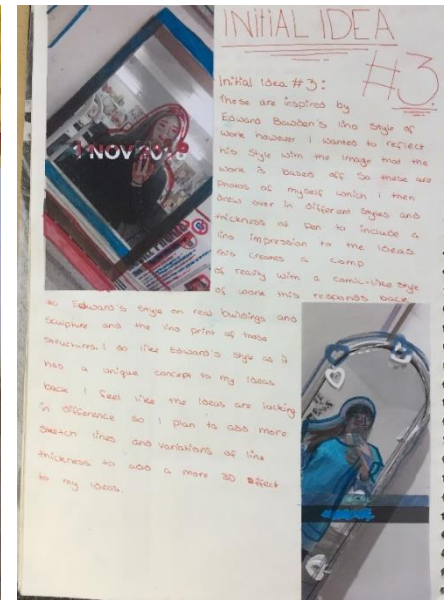 INITIAL IDEA
#3
Initial Idea #3:
These are inspired by
Edward Bawden's lino style of
work however I wanted to reflect
his style with the image that the
work is based off So these are
photos of myself which I then
drew over in different styles and
thickness of pen to include a
lino impression to the ideas
this creates a comp
of reality with a comic-like style
of work this responds back
to Edward's style on real buildings and
sculpture and the lino print of those
structures. I so like Edward's style as it
has a unique concept to my ideas
back I feel like the ideas are lacking
in difference so I plan to add more
sketch lines and variations of line
thickness to add a more 3D effect
to my ideas.
1 NOV 2018